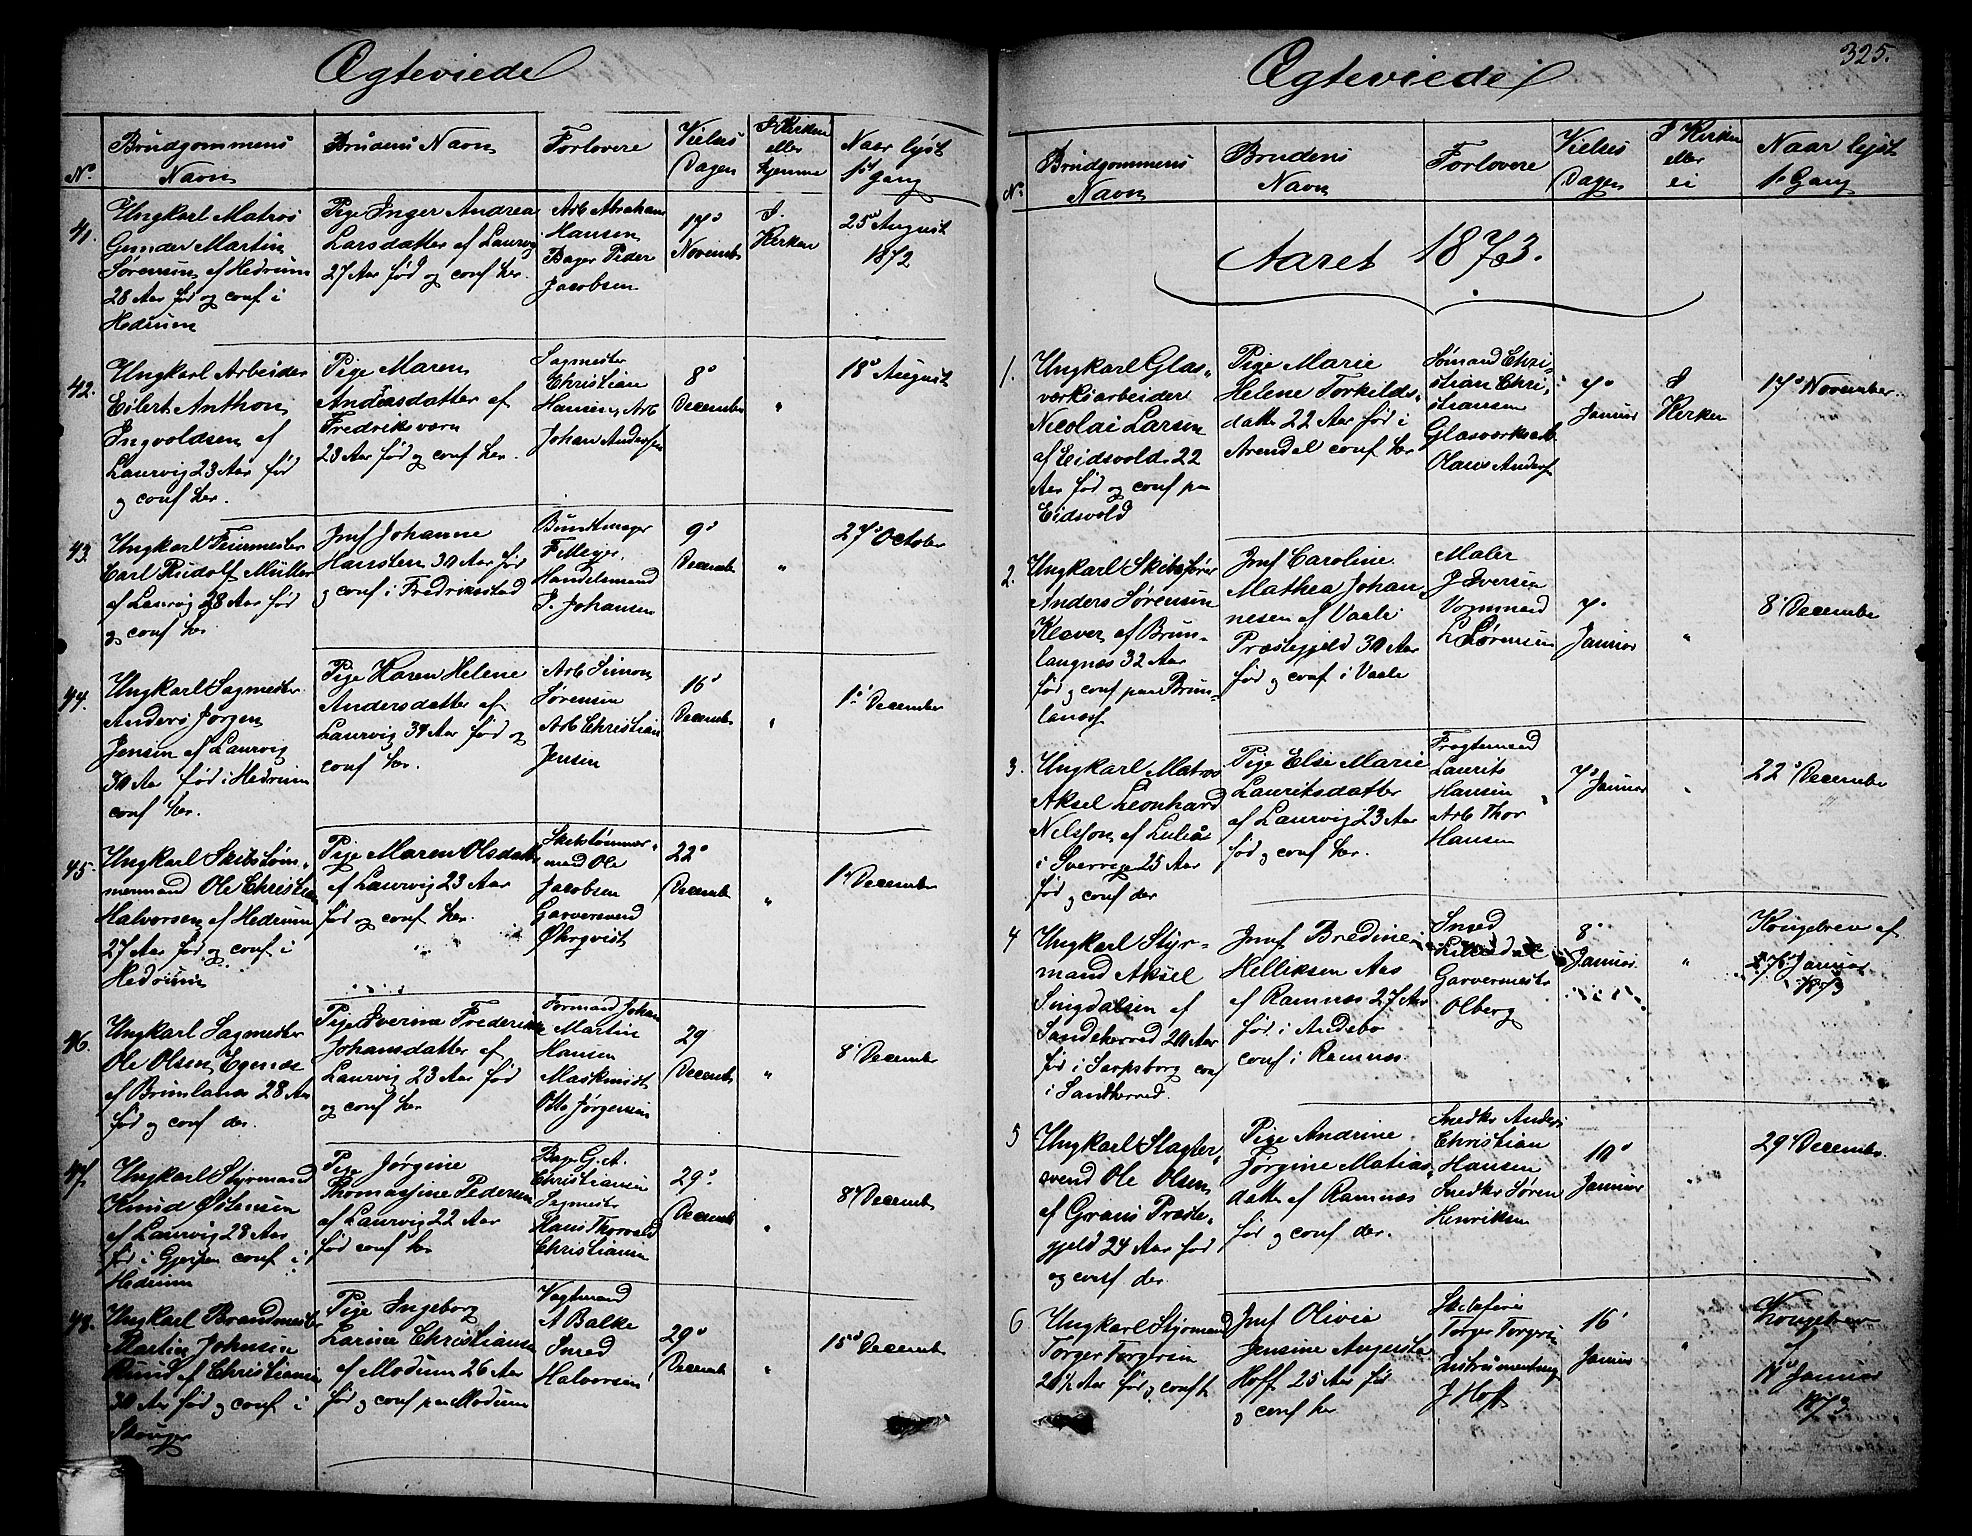 Ægteviede
No
Brudgommens
Navn
Brudens Navn
Forlovere
Vielses
Dagen
I Kirken
eller
hjemme
Naar lyst
1ste gang
41.
Ungkarl Matros
Gunder Martin
Sørensen af Hedrum
28 Aar fød og conf i
Hedrum
Pige Inger Andrea
Larsdatter af Laurvig
27 Aar fød og conf her.
Arb Abraham
Hansen
Bager Peder
Jacobsen
17de
November
I
Kirken
25de August
1872
42.
Ungkarl Arbeider
Eilert Anthon
Ingvoldsen af
Laurvig 23 Aar fød
og conf her.
Pige Maren
Andersdatter af
Fredriksværn
23 Aar fød og conf her.
Sagmester
Christian
Hansen, Arb
Johan Andersen
8de
December
"
18de August
43.
Ungkarl Feiermester
Carl Rudolf Müller
af Laurvig 28 Aar fød
og conf her
Jmf Johanne
Hansten 30 Aar fød
og conf i Fredriksstad
Buntmager
F Meyer
Handelsmand
J. Johansen
9de
December
"
27de October
44.
Ungkarl Sagmester
Anders Jørgen
Jensen af Laurvig
30 Aar fød i Hedrum
conf her.
Pige Karen Helene
Andersdatter af
Laurvig 34 Aar fød og
conf her.
Arb Simon
Sørensen
Arb Christian
Jensen
16de
December
"
1ste December
45.
Ungkarl Skibstøm-
mermand Ole Christian
Halvorsen af Hedrum
27 Aar fød og conf i
Hedrum
Pige Maren Olsdatter
af Laurvig 23 Aar
fød og conf her.
Skibstømmer-
mand Ole
Jacobsen
Garversvend
Øhrqvist
22de
December
"
1ste December
46.
Ungkarl Sagmester
Ole Olsen Egenæs
af Brunlanæs 28 Aar
fød og conf der.
Pige Iverine Frederikke
Johansdatter af
Laurvig 23 Aar fød
og conf her
Formand Johan
Martin
Hansen
Maskinist
Otto Jørgensen
29
December
"
8de December
47.
Ungkarl Styrmand
Knud Østensen
af Laurvig 28 Aar
fød i Gjerpen conf i
Hedrum
Pige Jørgine
Thomasine Pedersen
af Laurvig 22 Aar
fød conf her
Bager G. A.
Christiansen
Sagmester
Hans Thorvald
Christiansen
29de
December
"
8de December
48.
Ungkarl Brandmester
Martin Johnsen
Ruud af Christiania
30 Aar fød og conf i
Skouger
Pige Ingeborg
Larine Christiansen
af Modum 26 Aar
fød og conf paa Modum
Vagtmand
A Balke
Smed
Halvorsen
29de
December
"
15de December
Ægteviede
325.
No
Brudgommens
Navn
Brudens
Navn
Forlovere
Vielses
Dagen
I Kirken
eller
ei
Naar lyst
1ste Gang
Aaret 1873.
1.
Ungkarl Glas-
værksarbeider
Nicolai Larsen
af Eidsvold 22
Aar fød og conf paa
Eidsvold
Pige Marie
Helene Torkilds-
datter 22 Aar fød i
Arendal conf her
Sømand Chri-
stian Chri-
stiansen
Glasværksarb.
Olaus Anders.
7de
Januar
I
Kirken
17de November.
2.
Ungkarl Skibsfører
Anders Sørensen
Klever af Brun-
langnæs 32 Aar
fød og conf paa Brun-
lanæs
Jmf Caroline
Mathea Johan-
nesen af Vaale
Præstegjeld 30 Aar
fød og conf i Vaale
Maler
J Iversen
Vognmand
L Sørensen
7de
Januar
"
8de December
3.
Ungkarl Matros
Aksel Leonhard
Nilsson af Luleå
i Sverrige 25 Aar
fød og conf der
Pige Else Marie
Lauritsdatter
af Laurvig 23 Aar
fød og conf her.
Fragtemand
Laurits
Hansen
Arb Thor
Hansen
7de Januar
"
22de December
4
Ungkarl Styr-
mand Aksel
Singdalsen af
Sandeherred 20 Aar
fød i Sarpsborg conf
i Sandherred.
Jmf Bredine
Helliksen Aas
af Ramnæs 27 Aar
fød i Andebo
conf i Ramnæs.
Smed
Garvermester
Olberg
8de
Januar
"
Kongebrev af
Januar
1873
5
Ungkarl Slagter-
svend Ole Olsen
af Grans Præste-
gjeld 24 Aar fød
og conf der
Pige Andrine
Jørgine Matias-
datter af Ramnæs
fød og conf der.
Snedker Anders
Christian
Hansen
Snedker Søren
Henriksen
10de
Januar
"
29de December
6
Ungkarl Styrmand
Torger Torgersen
Aar fød og conf h.
Jmf Olivia
Jensine Augusta
Hoff 25 Aar fød
og conf her
Skibsfører
Torger Torgersen
Instrumentmag
J Hoff
16
Januar
"
Kongebrev
af
Januar
1873